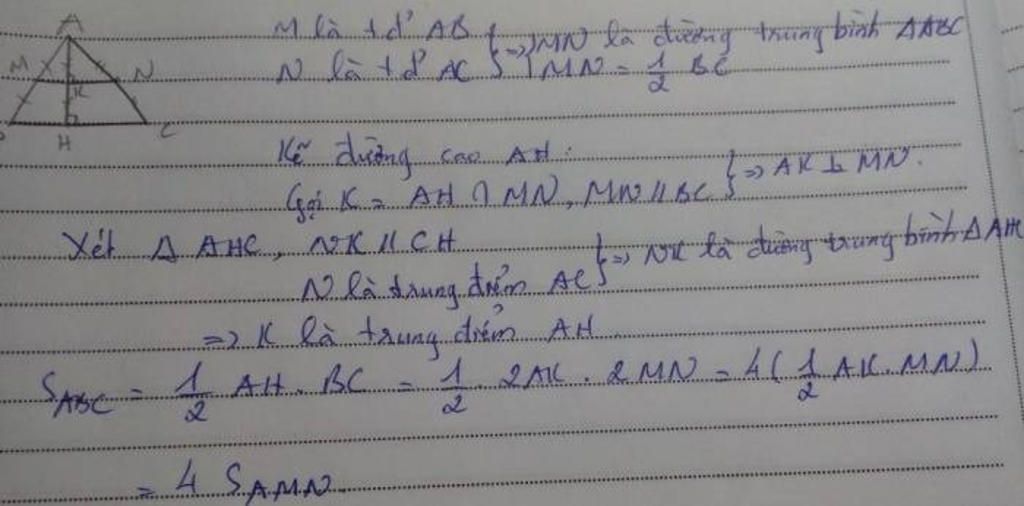 A
M N
K
B H C
M là tđ' AB } => { MN là đường trung bình ΔABC
N là tđ' AC } MN = 1/2 BC
Kẻ đường cao AH.
Gọi K = AH ∩ MN, MN // BC } => AK ⊥ MN.
Xét Δ AHC, NK // CH
N là trung điểm AC } => NK là đường trung bình Δ AHC
=> K là trung điểm AH
S_ABC = 1/2 AH . BC = 1/2 . 2AK . 2MN = 4(1/2 AK . MN)
= 4 S_AMN.